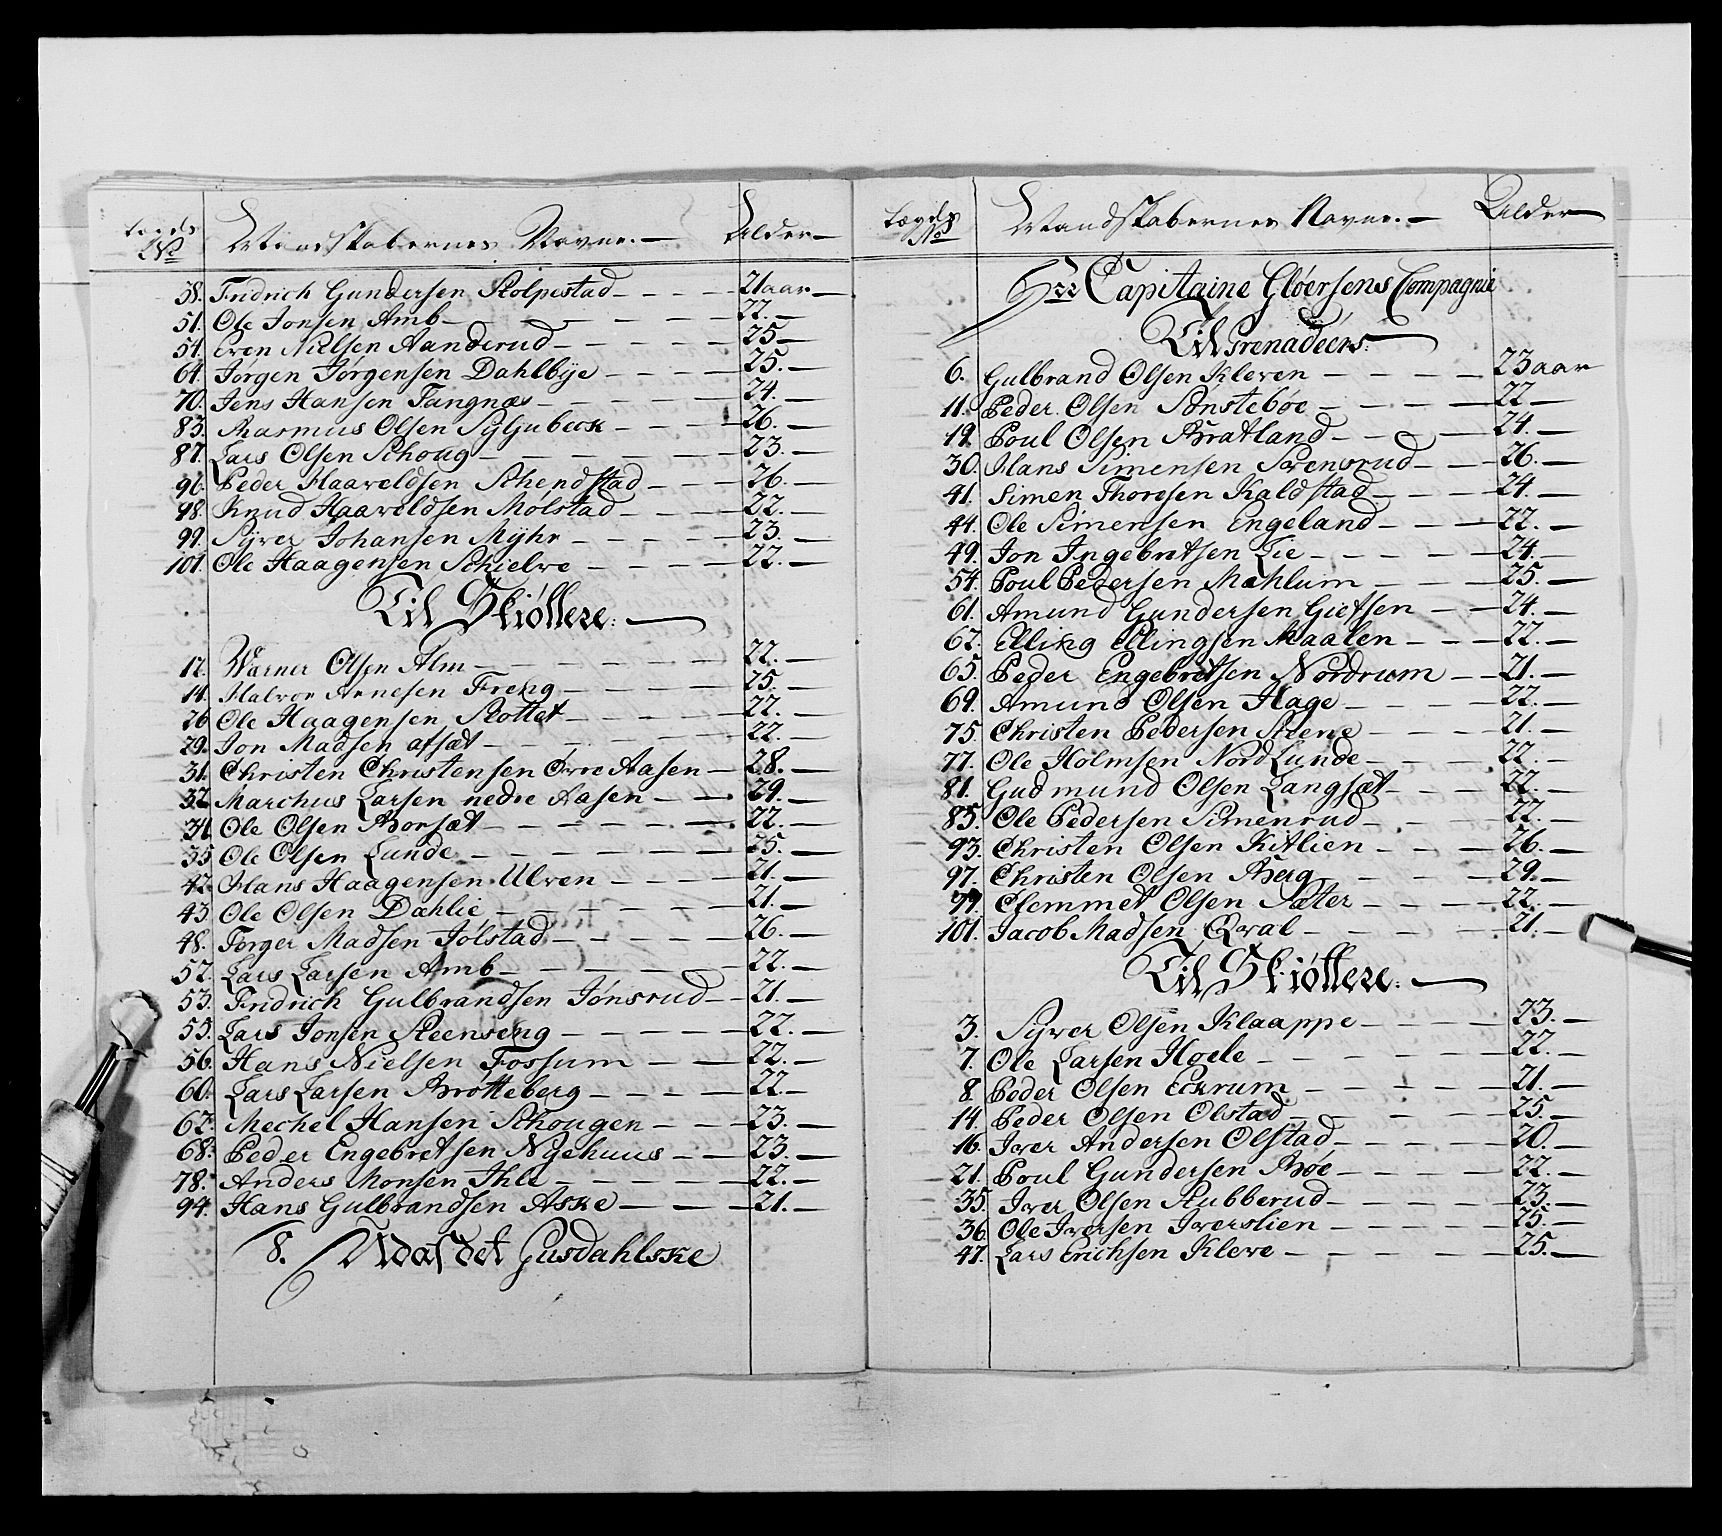 Lægds No Mandskabernes Navne. Alder
38. Fridrich Gundersen Stolpestad 21 aar
51. Ole Jonsen Amb 22.
51. Even Nielsen Aanderud 25
64. Jørgen Jørgensen Dahlbye 25.
70. Jens Hansen Tangnæs 24.
83. Rasmus Olsen Sÿljubeck 26.
87. Lars Olsen Schoug 23.
96. Peder Haaveldsen Schendstad 26.
98. Knud Haaveldsen Mølstad 22.
99. Syver Johansen Mÿhr 23.
101. Ole Haagensen Schielve 22.
Til Skiøttere.
12. Warner Olsen Alm 22.
14. Halvor Arnesen Freng 25.
26 Ole Haagensen Slottet 22.
29. Jon Madsen afsæt 22.
31. Christen Christensen Øvre Aasen 28.
32 Marchus Larsen nedre Aasen 29.
34 Ole Olsen Borsæt 22.
35 Ole Olsen Lunde 25.
42 Hans Haagensen Ulven 21.
43. Ole Olsen Dæhlie 21.
48. Torger Madsen Jølstad 26.
52. Lars Larsen Amb 22.
53. Fridrich Gulbrandsen Jønsrud 21.
55. Lars Jonsen Steenseng 22.
56. Hans Nielsen Fossum 22.
60. Lars Larsen Brotteberg 22.
62. Mechel Hansen Schougen 23.
68. Peder Engebretsen Nyehuus 23.
78. Anders Monsen Ihle 22.
94. Hans Gulbrandsen Aske 21.
8. Udaf det Gusdahlske
Lægds No Mandskabernes Navne. Alder
Hrr Capitaine Gløersens Compagnie
Til Grenadeers.
6. Gulbrand Olsen Kleven 23 aar
11. Peder Olsen Sønstebøe 22
19. Poul Olsen Bratland 24.
30. Hans Simensen Svensrud 26.
41. Simen Thoresen Kaldstad 24.
44. Ole Simensen Engeland 22.
49. Jon Ingebretsen Lie 24.
54. Poul Pedersen Mæhlum 25.
61. Amund Gundersen Gietsen 24.
62. Elling Ellingsen Maalen 22.
65. Peder Engebretsen Nordrum 21.
69. Amund Olsen Hage 22.
75. Christen Pedersen Steene 21.
77. Ole Holmsen NordLunde 22.
81. Gudmund Olsen Langsæt 22.
85. Ole Pedersen Simenrud 22.
93. Christen Olsen Kitlien 26.
97. Christen Olsen Berg 29.
99. Clemmet Olsen Sæter 22.
101. Jacob Madsen Qval 21.
Til Skiøttere.
3. Syver Olsen Klaappe 23.
7. Ole Larsen Hoele 22.
8. Peder Olsen Eckrum 21.
14. Peder Olsen Olstad 25.
16. Iver Andersen Olstad 20.
21. Poul Gundersen Bøe 22.
35. Iver Olsen Stubberud 23.
36. Ole Iversen Iverslien 25.
47. Lars Erichsen Kleve 25.